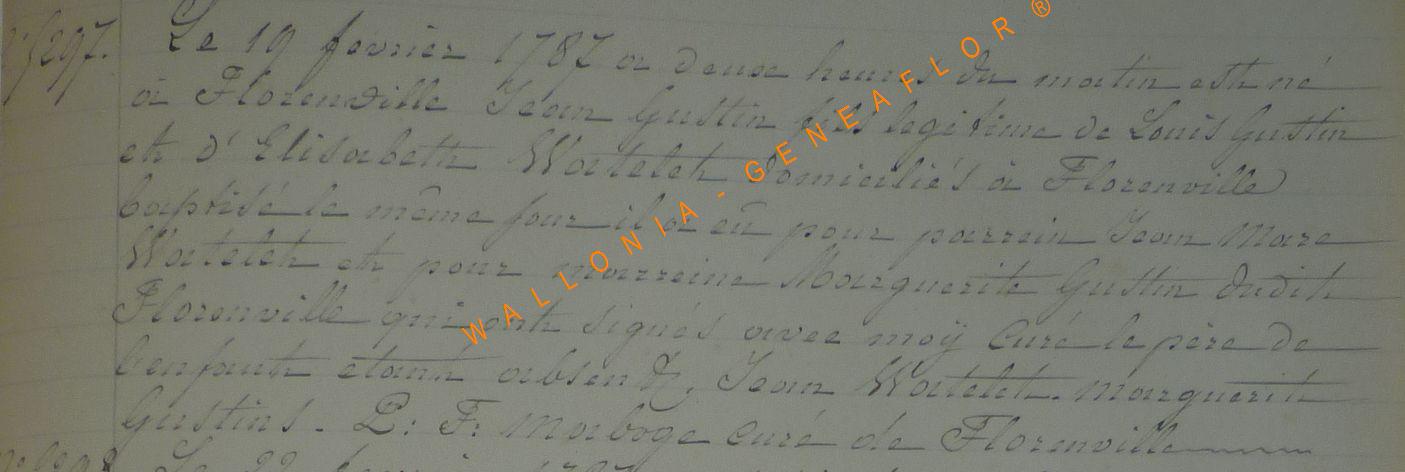 Le 19 fevrier 1787 a deux heures du matin est né
à Florenville Jean Gustin fils legitime de Louis Gustin
et d'Elisabeth Watelet domiciliés à Florenville
baptisé le même jour il a eû pour parrein Jean Marc
Watelet et pour marreine Marguerite Gustin dudit
Florenville qui ont signés avec moÿ Curé le père de
l'enfant etant absent, Jean Watelet. Marguerite
Gustins. P: F: Marboge Curé de Florenville
Le 22
WALLONIA - GENEAFLOR ®